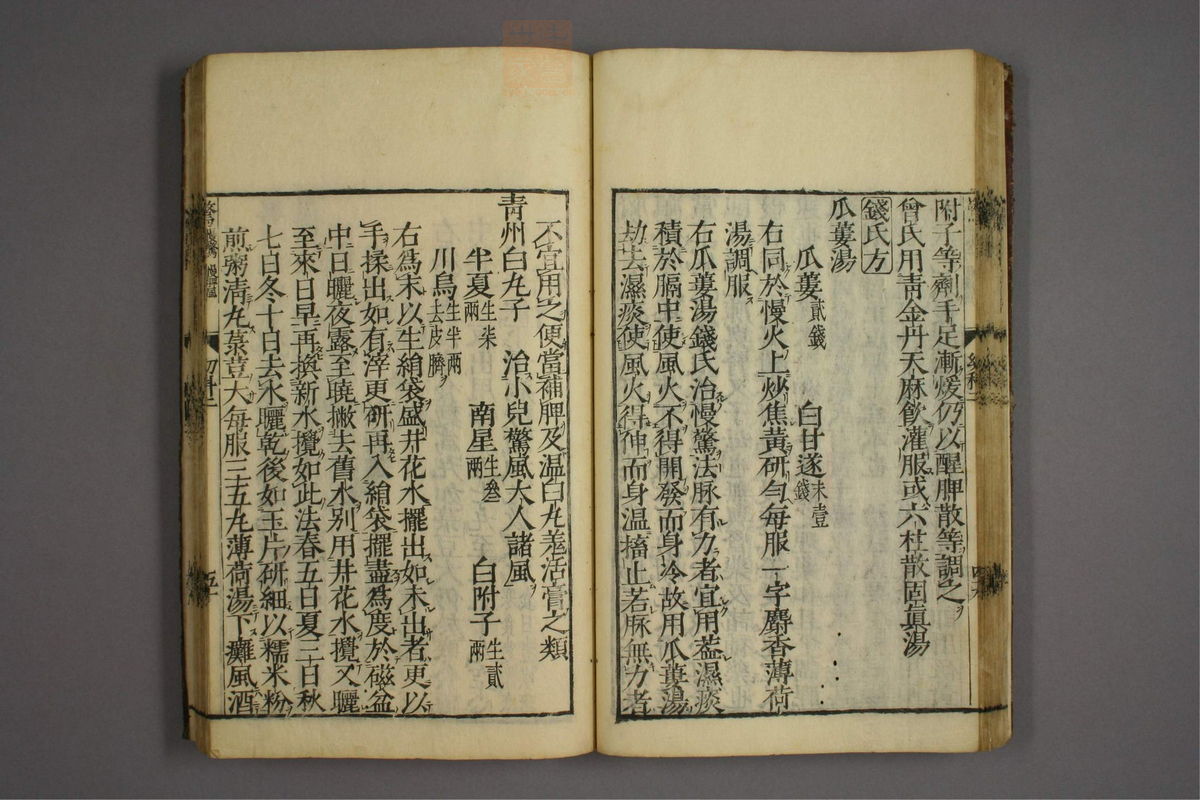 附子等劑手足漸煖仍以醒脾散等調之
曾氏用靑金丹天麻飮灌服或六柱散固眞湯
錢氏方
瓜蔞湯
瓜蔞貳錢 白甘遂末壹錢
右同於慢火上炒焦黃研勻每服一字麝香薄荷
湯調服
右瓜蔞湯錢氏治慢驚法脉有力者宜用葢濕痰
積於膈中使風火不得開發而身冷故用瓜蔞湯
劫去濕痰使風火得伸而身温搐止若脉無力者
不宜用之便當補脾及温白丸羗活膏之類
靑州白丸子 治小兒驚風大人諸風
半夏生柒兩 南星生叄兩 白附子生貳兩
川烏生半兩去皮臍
右爲末以生絹袋盛井花水擺出如未出者更以
手揉出如有滓更硏再入絹袋擺盡爲度於磁盆
中日曬夜露至曉撇去舊水别用井花水攪又曬
至來日早再換新水攪如此法春五日夏三日秋
七日冬十日去水曬乾後如玉片硏細以糯米粉
煎粥淸丸菉荳大每服三五丸薄荷湯下癱風酒